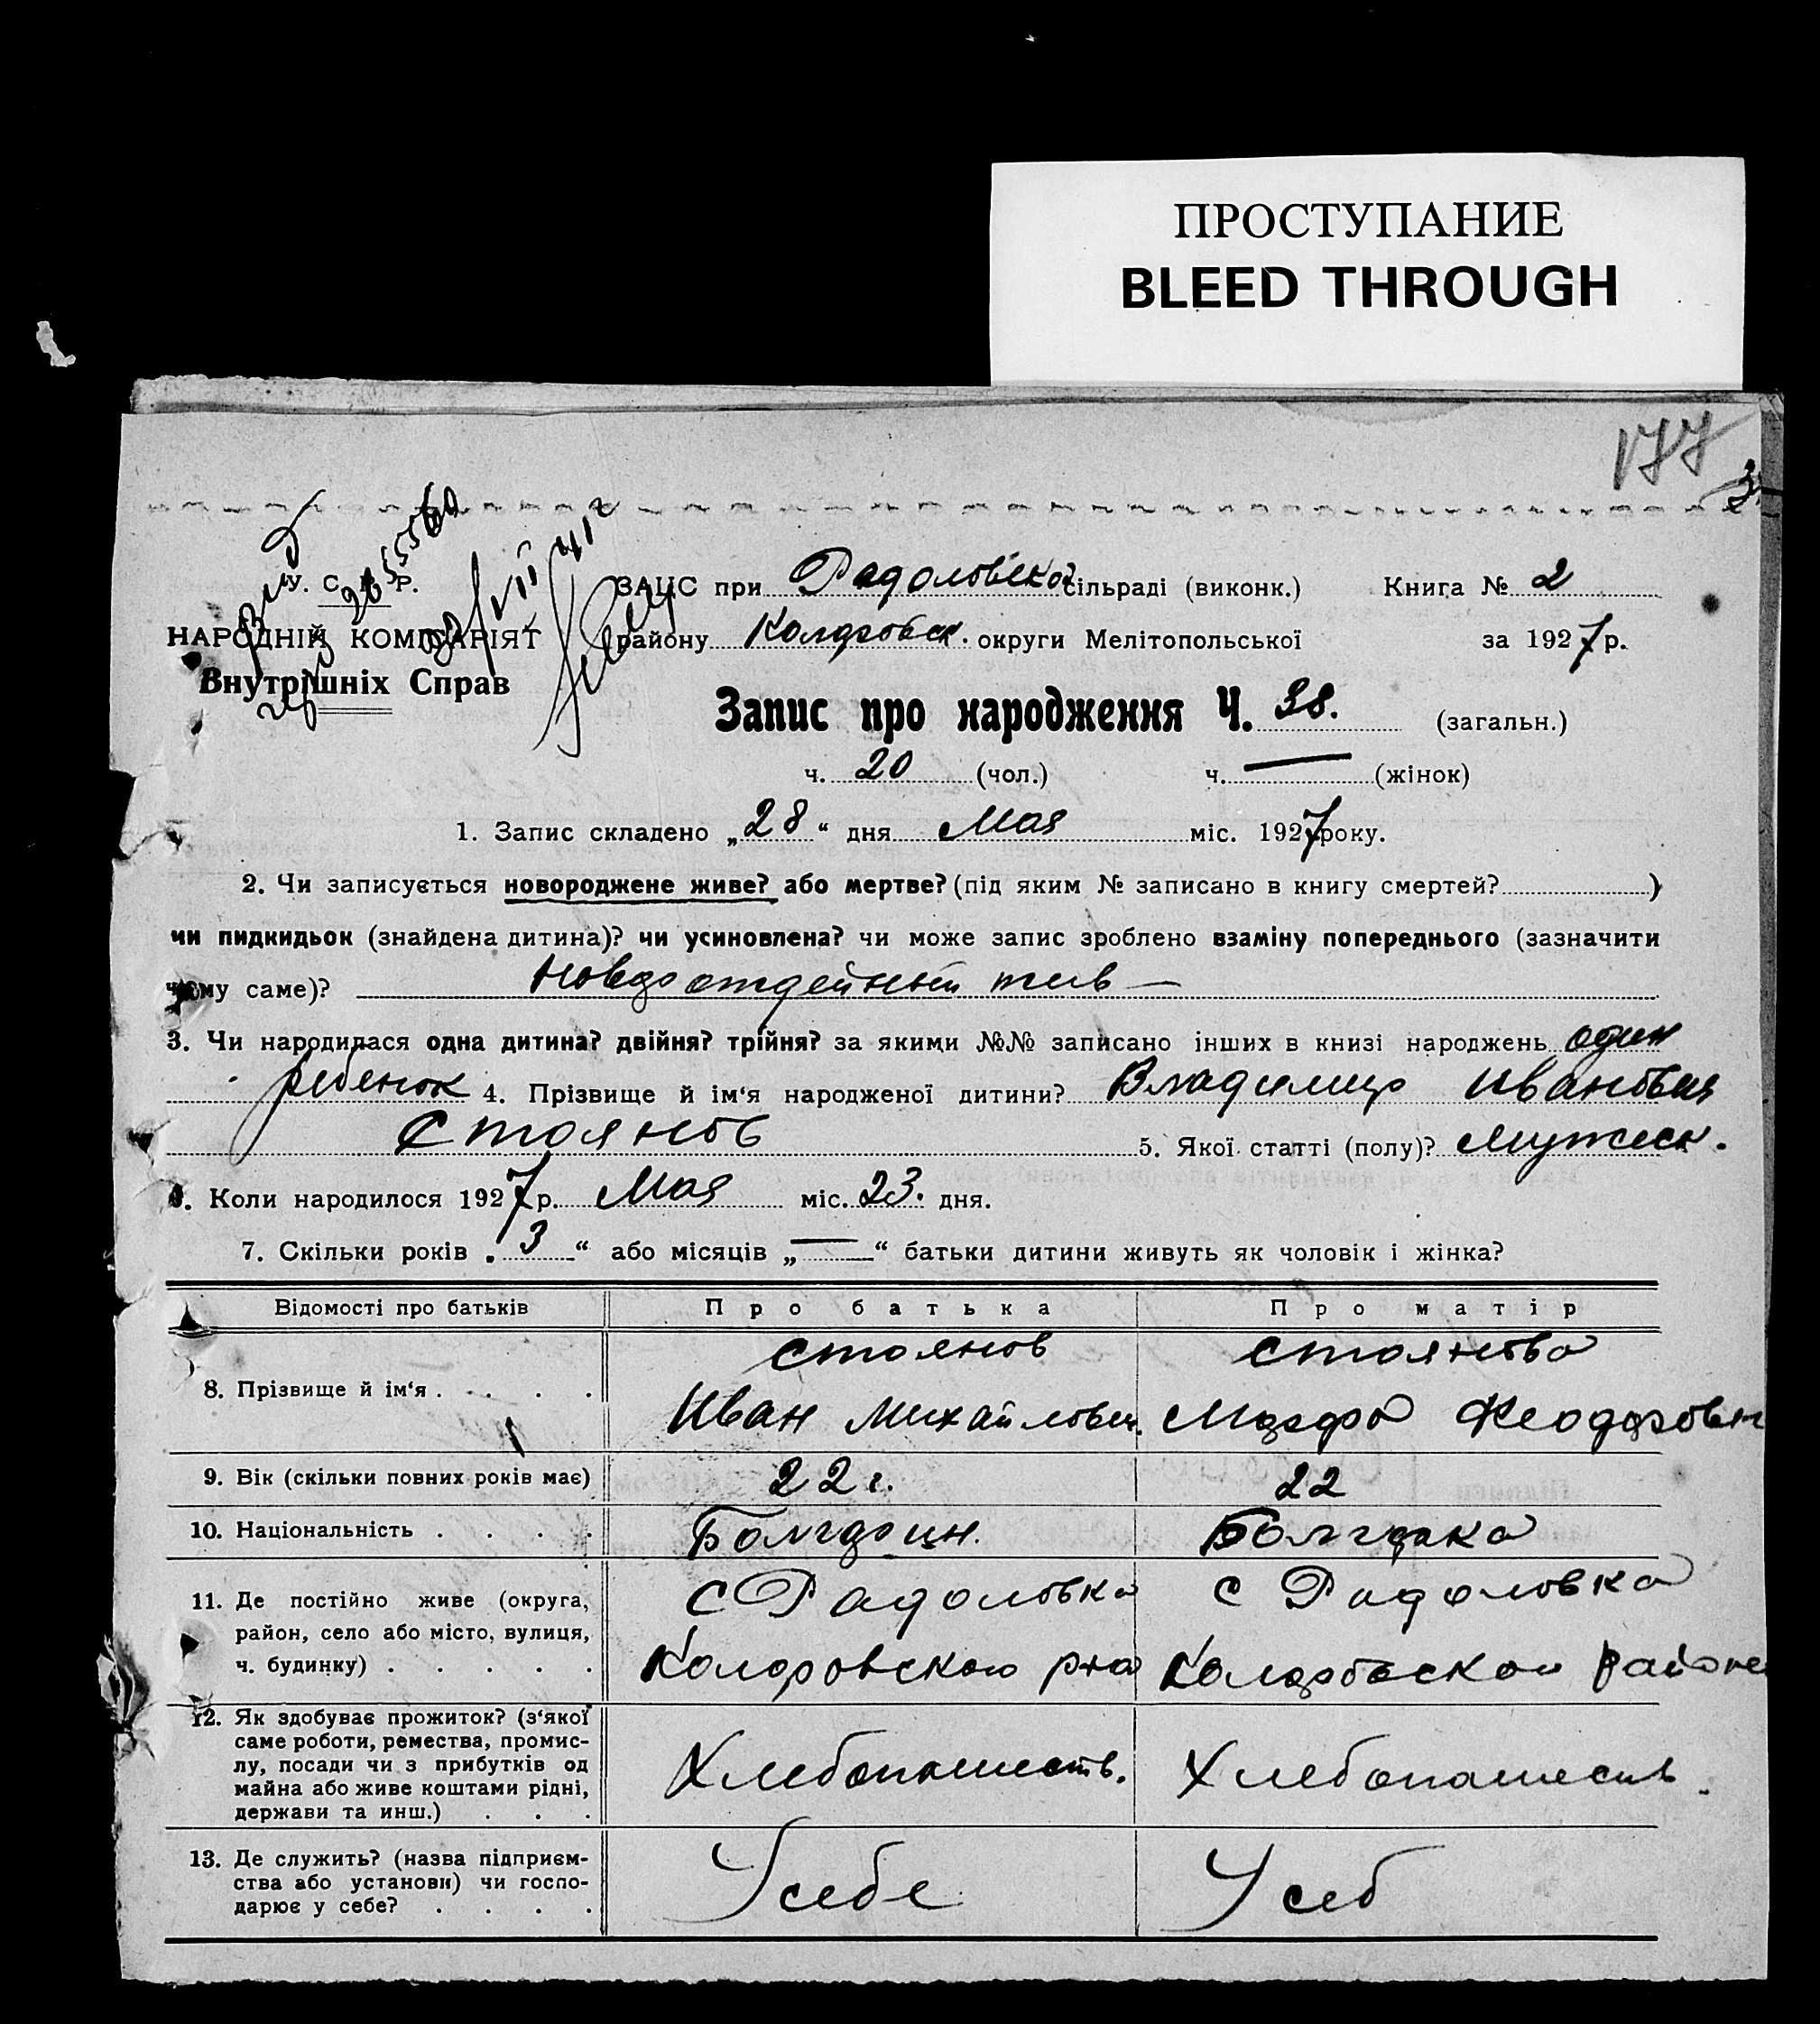 ПРОСТУПАНИЕ
BLEED THROUGH
177
У. С. Р. Р.
НАРОДНІЙ КОМІСАРІЯТ
Внутрішніх Справ
ЗАЦС при Радоловской сільраді (виконк.) Книга № 2
району Коларовск. округи Мелітопольської за 1927 р.
Запис про народження Ч. 38. (загальн.)
ч. 20 (чол.) ч. — (жінок)
1. Запис складено „28“ дня Мая міс. 1927 року.
2. Чи записується новороджене живе? або мертве? (під яким № записано в книгу смертей? )
чи пидкидьок (знайдена дитина)? чи усиновлена? чи може запис зроблено взаміну попереднього (зазначити
чому саме)? жив —
3. Чи народилася одна дитина? двійня? трійня? за якими №№ записано інших в книзі народжень один
ребенок 4. Прізвище й ім‘я народженої дитини? Владимир Иванович
Стоянов 5. Якої статті (полу)? Мужеск.
6. Коли народилося 1927 р. Мая міс. 23. дня.
7. Скільки років „3“ або місяців „—“ батьки дитини живуть як чоловік і жінка?
Відомості про батьків Про батька Про матір
Стоянов Стоянова
8. Прізвище й ім‘я . . . .
Иван Михайлович. Марфа Феодоровн
9. Вік (скільки повних років має) 22 г. 22
10. Національність . . . . Болгарин. Болгарка
11. Де постійно живе (округа, район, село або місто, вулиця, ч. будинку) . . . . .
С Радоловка С Радоловка
Коларовского р-на Коларовского района
12. Як здобуває прожиток? (з‘якої
саме роботи, ремества, промис-
лу, посади чи з прибутків од
майна або живе коштами рідні,
держави та инш.) . . .
Хлебопашеств. Хлебопашеств.
13. Де служить? (назва підприєм-
ства або установи) чи госпо-
дарює у себе? . . . .
У себе У себ